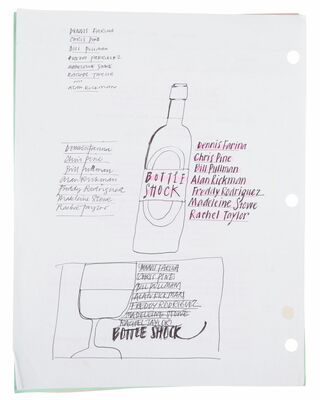 DENNIS FARINA
CHRIS PINE
BILL PULLMAN
FREDDY RODRIGUEZ
MADELEINE STOWE
RACHEL TAYLOR
ALAN RICKMAN
Dennis Farina
Chris Pine
Bill Pullman
Alan Rickman
Freddy Rodriguez
Madeleine Stowe
Rachel Taylor
BOTTLE
SHOCK
Dennis Farina
Chris Pine
Bill Pullman
Alan Rickman
Freddy Rodriguez
Madeleine Stowe
Rachel Taylor
DENNIS FARINA
CHRIS PINE
BILL PULLMAN
ALAN RICKMAN
FREDDY RODRIGUEZ
MADELEINE STOWE
RACHEL TAYLOR
BOTTLE SHOCK